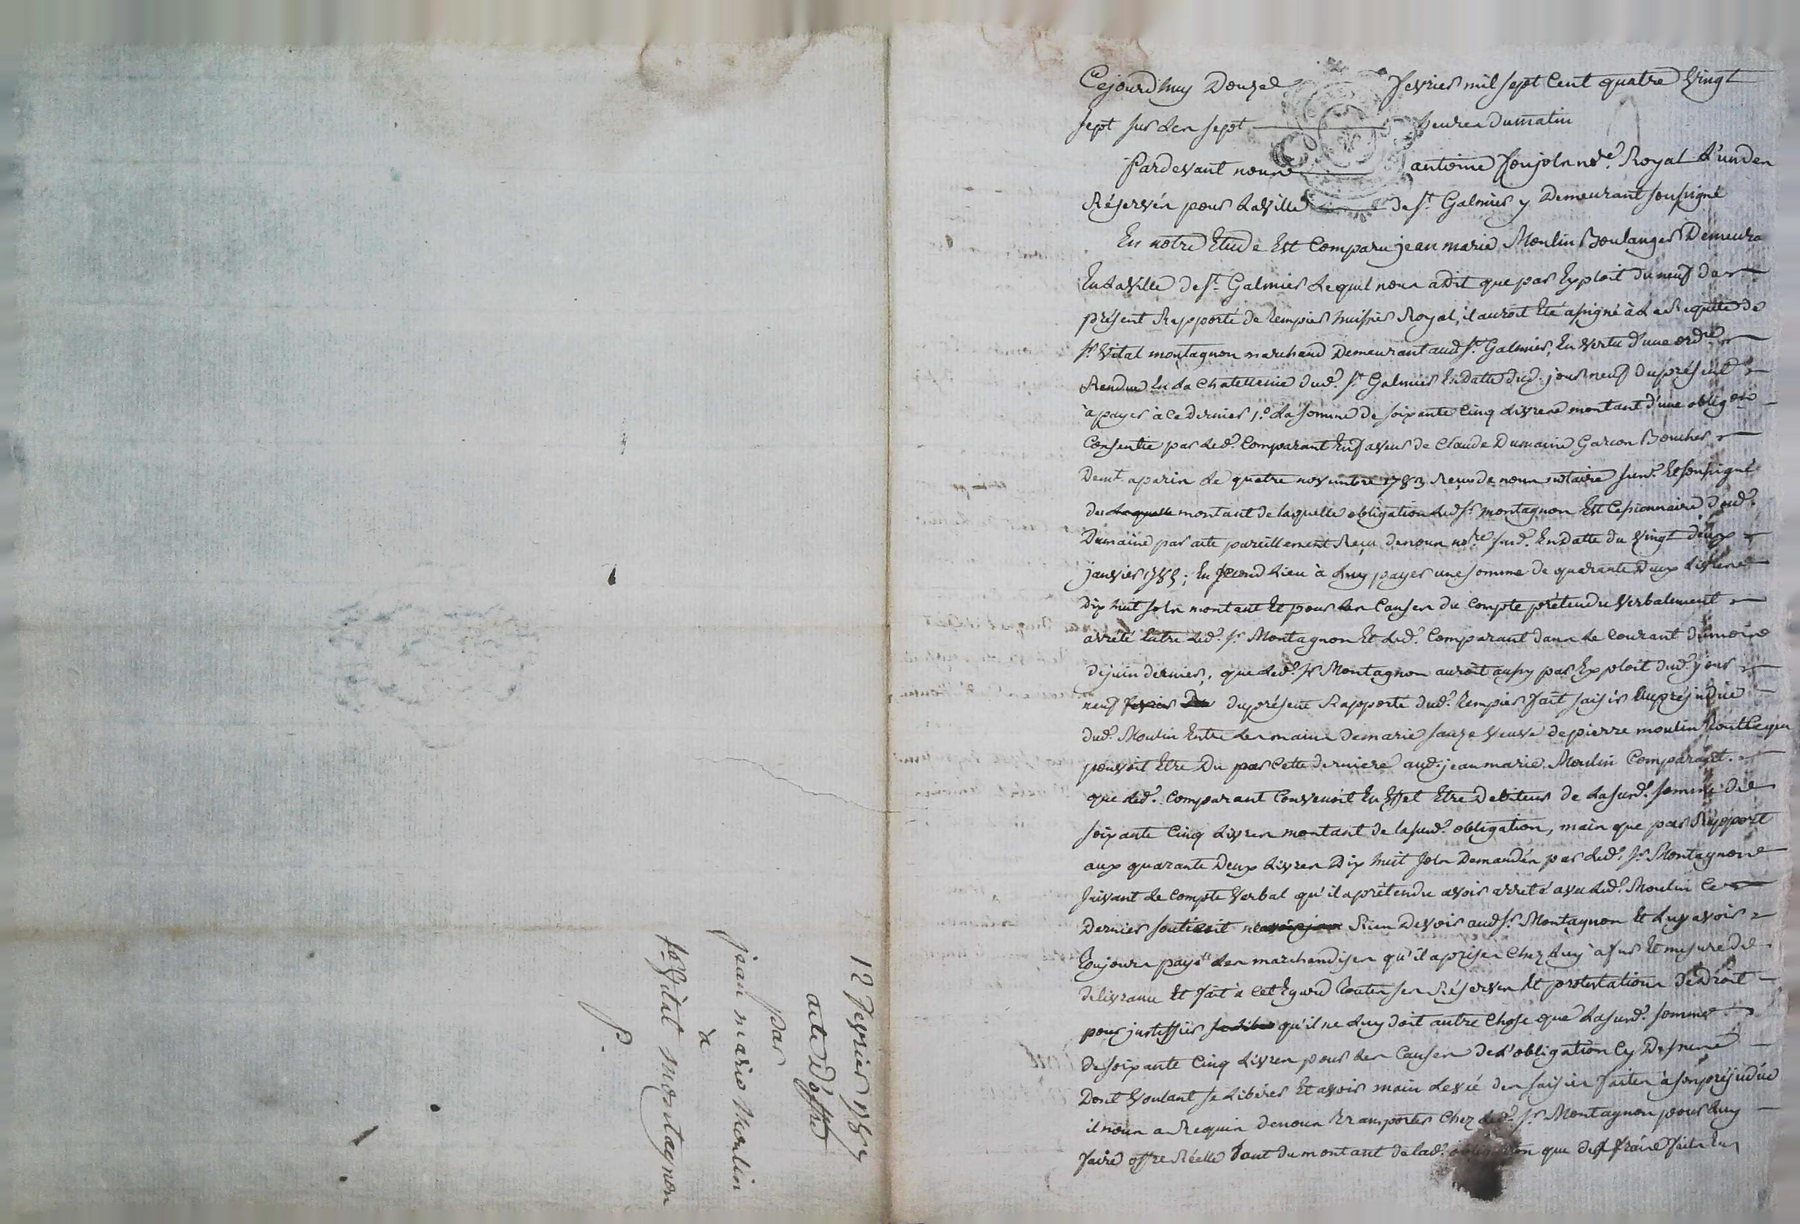 12 fevrier 1787
acte d'offre
par
jean marie Moulin
a
s.r Vital montagnon
P.
Cejourdhuy Douze fevrier mil sept Cent quatre Vingt
sept sur les sept heures du matin
Pardevant nous antoine Ponjols no.re Royal L'un des
Réservés pour La Ville de S.t Galmier y Demeurant soussigné
En notre Etude Est Comparu jean marie Moulin Boulanger Demeura
En La Ville de S.t Galmier Lequel nous a dit que par Exploit du neuf du
présent Rapporté de Rempier huissier Royal, il auroit Eté assigné à La Requete de
s.r Vital montagnon marchand Demeurant aud. S.t Galmier, En vertu d'une ord.ce
Rendue En La Chatellenie dud. S.t Galmier En Date dud. jour neuf du présent
à payer à ce Dernier 1.o La somme de soixante Cinq Livres montant d'une oblig.on
Consentie par Led. Comparant En faveur de Claude Dumaine Garcon Boucher
Dem.t a paris Le quatre novembre 1783 Reçue de nous notaire sus.d Et soussigné
de Laquelle montant de laquelle obligation Led. s.r Montagnon Est Cessionnaire dud.
Dumaine par acte pareillement Reçu de nous no.re susd. En Datte du Vingt deux
janvier 1785; En second Lieu à Luy payer une somme de quarante Deux Livres
Dix huit sols montant Et pour Les Causes du Compte prétendu Verbalement
arrêté Entre Led. s.r Montagnon Et Led. Comparant dans Le Courant du mois
de juin dernier, que Led. s.r Montagnon auroit aussy par Exploit dud. jour
neuf du présent Rapporté dud. Rempier fait saisir Au préjudice
dud. Moulin Entre Les mains de marie sauze Veuve de pierre moulin tout Ce qui
pouvoit Etre Du par Cette derniere aud. jean marie Moulin Comparant.
que Led. Comparant Convenoit En Effet Etre Debiteur de La susd. somme de
soixante Cinq Livres montant de La susd. obligation, mais que par Rapport
aux quarante Deux Livres Dix huit sols Demandés par Led. s.r Montagnon
suivant Le Compte Verbal qu'il a prétendu avoir arreté avec Led. Moulin Ce
Dernier soutient Rien Devoir aud. s.r Montagnon Et Luy avoir
toujours payé Les marchandises qu'il a prises Chez Luy à fur Et mesure de
delivrance Et fait à Cet Egard toutes ses Réserves Et protestations de Droit
pour justiffier qu'il ne Luy doit autre Chose que La susd. somme
de soixante Cinq Livres pour Les Causes de L'obligation Cy Dessus
Dont Voulant se Libérer Et avoir main Levée des saisies faites à son préjudice
il nous a Requis de nous Transporter Chez Led. s.r Montagnon pour Luy
faire offre Réelle tant du montant de lad. obligation que des fraix faits En